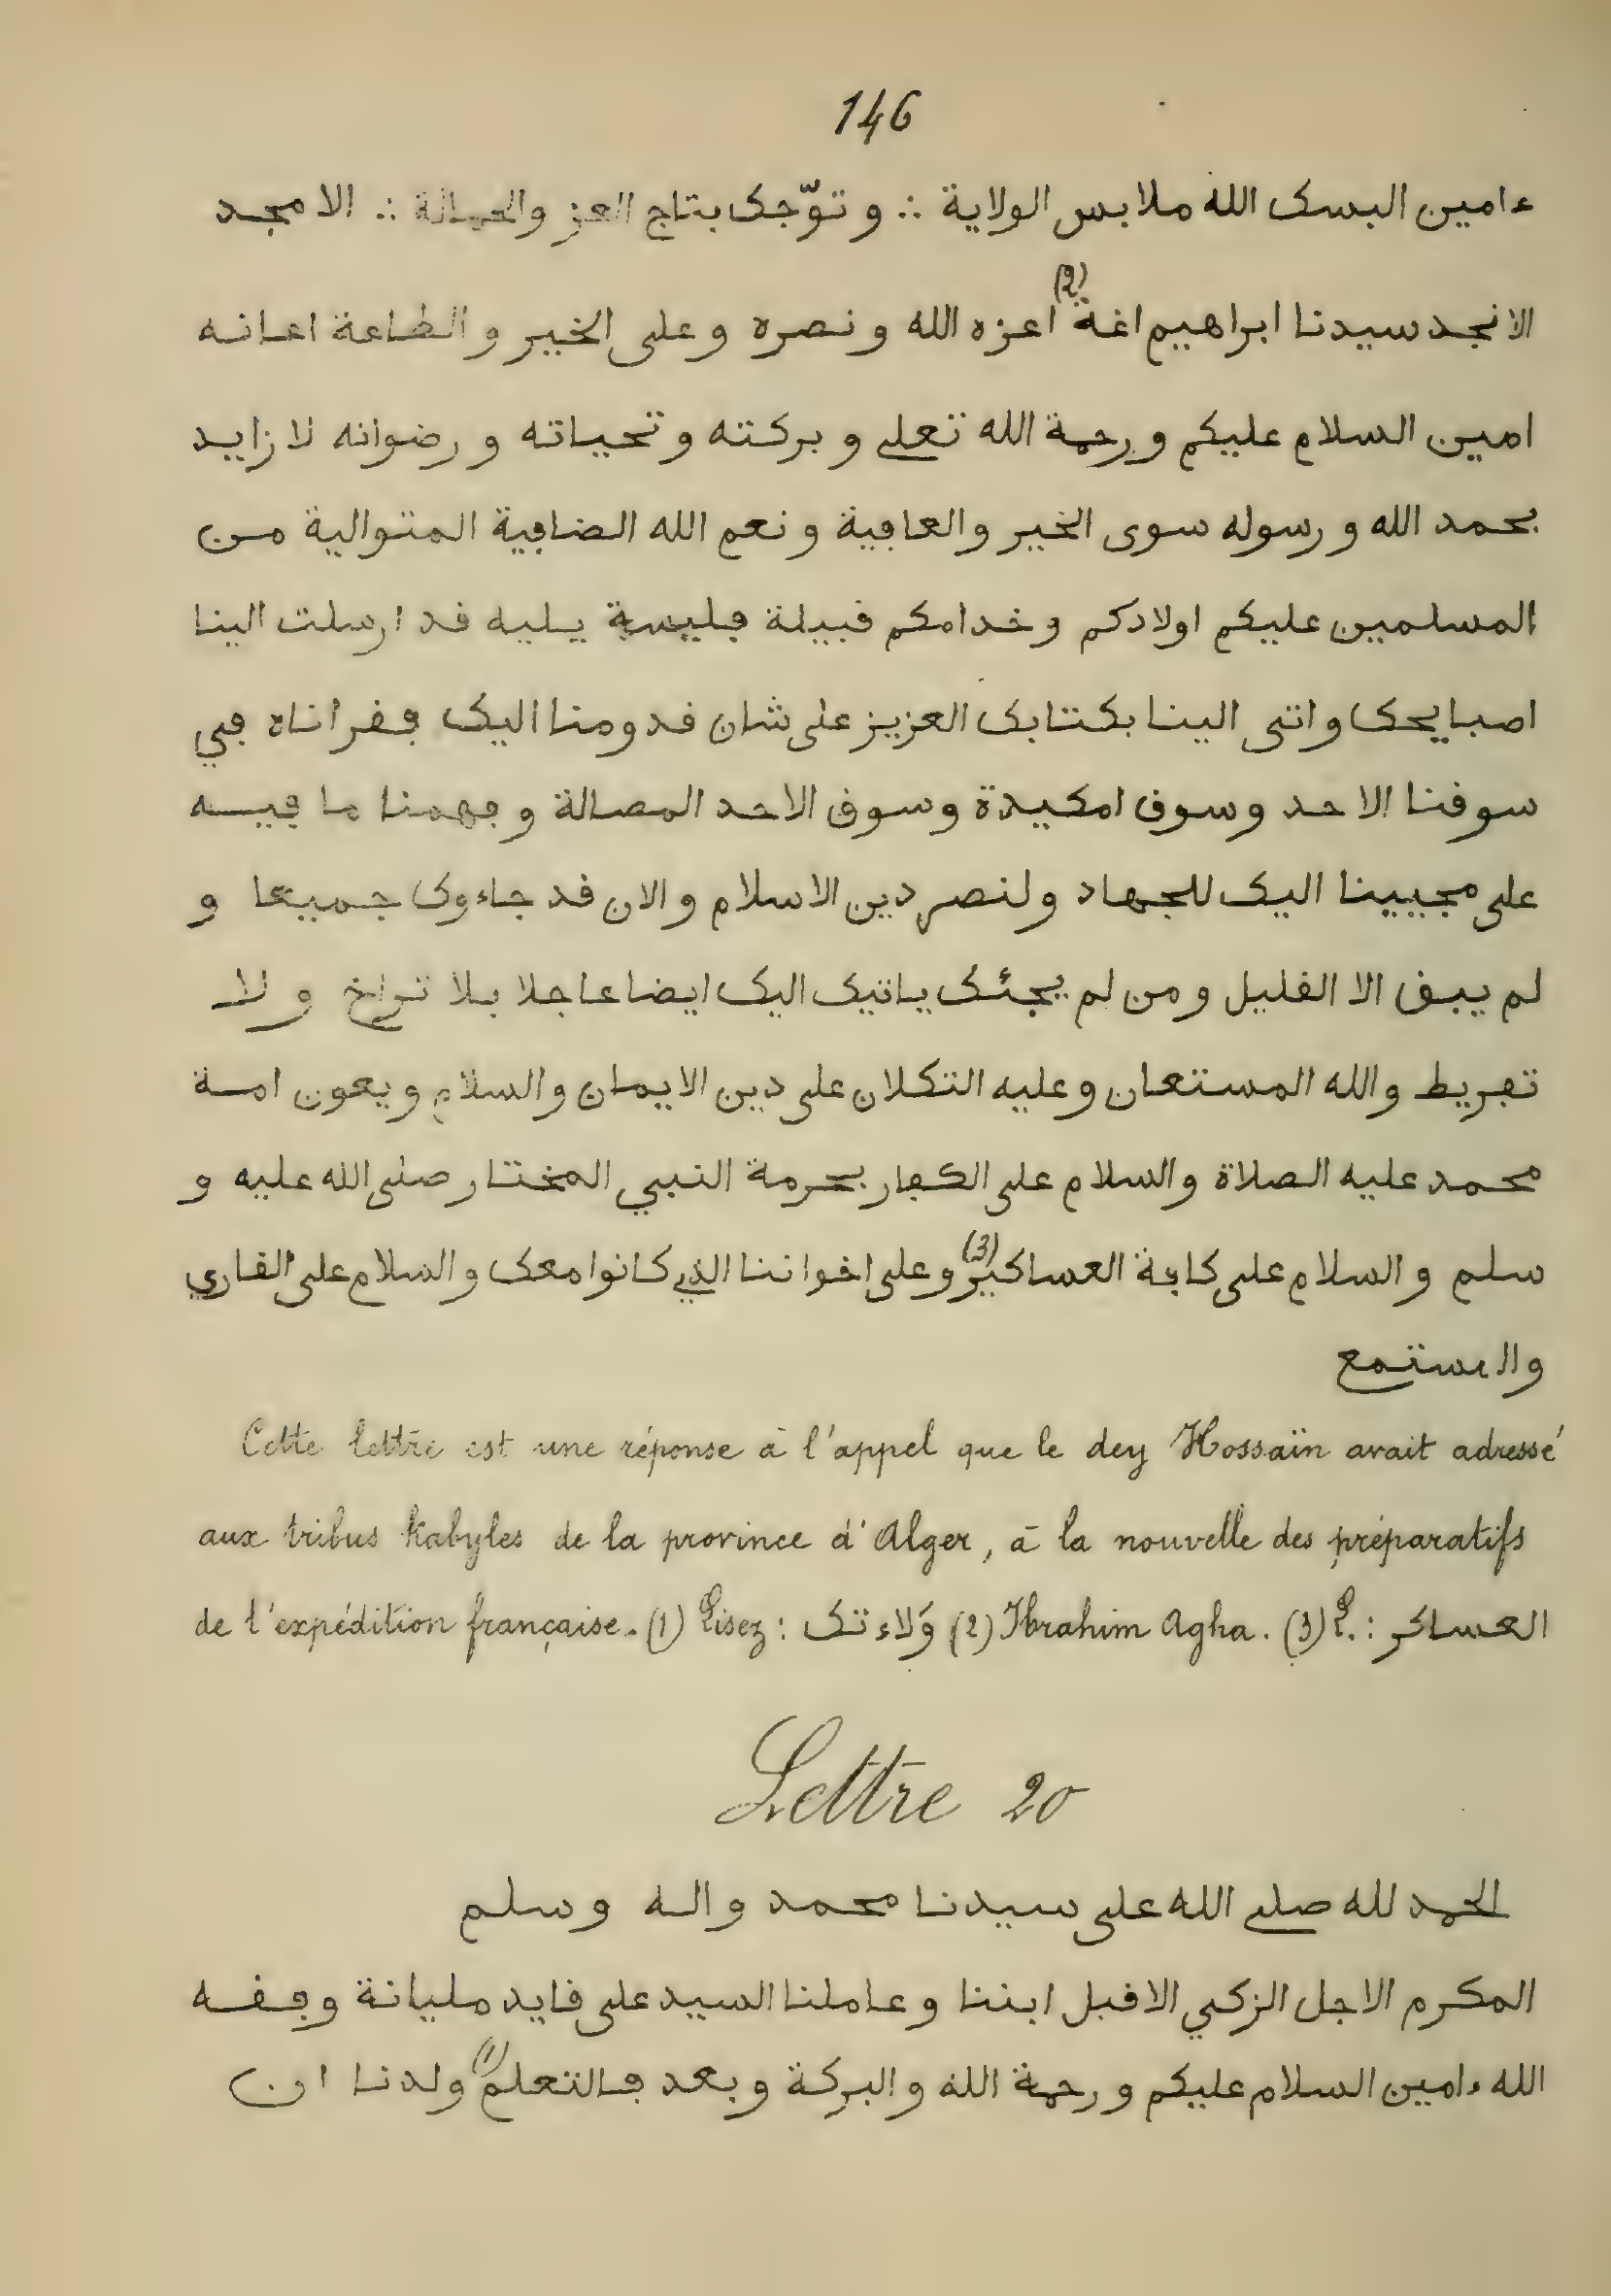 146
ءامين البسك الله ملابس الولاية ∴ و توّجك بتاج العز والعمالة ∴ الامجد
الانجد سيدنا ابراهيم اغة (2) اعزه الله و نصره و على الخير و الطاعة اعانه
امين السلام عليكم و رحمة الله تعلى و بركته و تحياته و رضوانه لا زايد
بحمد الله و رسوله سوى الخير والعافية و نعم الله الضافية المتوالية من
المسلمين عليكم اولادكم و خدامكم قبيلة فليسة يليه قد ارسلت الينا
اصبايحك و اتى الينا بكتابك العزيز على شان قدومنا اليك فقراناه في
سوقنا الاحد وسوق امكيدة وسوق الاحد المصالة و فهمنا ما فيه
على مجيينا اليك للجهاد ولنصر دين الاسلام والان قد جاءوك جميعا و
لم يبق الا القليل و من لم يجئك ياتيك اليك ايضا عاجلا بلا تراخ و لا
تفريط والله المستعان وعليه التكلان على دين الايمان والسلام ويعون امة
محمد عليه الصلاة والسلام على الكفار بحرمة النبي المختار صلى الله عليه و
سلم و السلام على كافة العساكير (3) و على اخواننا الذي كانوا معك والسلام على القاري
والمستمع
Cette lettre est une réponse à l'appel que le dey Hossaïn avait adressé
aux tribus Kabyles de la province d'Alger, à la nouvelle des préparatifs
de l'expédition française. (1) Lisez : وَلاءتك (2) Ibrahim Agha. (3) L. : العساكر
Lettre 20
الحمد لله صلى الله على سيدنا محمد واله وسلم
المكرم الاجل الزكي الاقبل ابننا و عاملنا السيد على قايد مليانة وفقه
الله ءامين السلام عليكم و رحمة الله والبركة وبعد فالتعلم (1) ولدنا ان